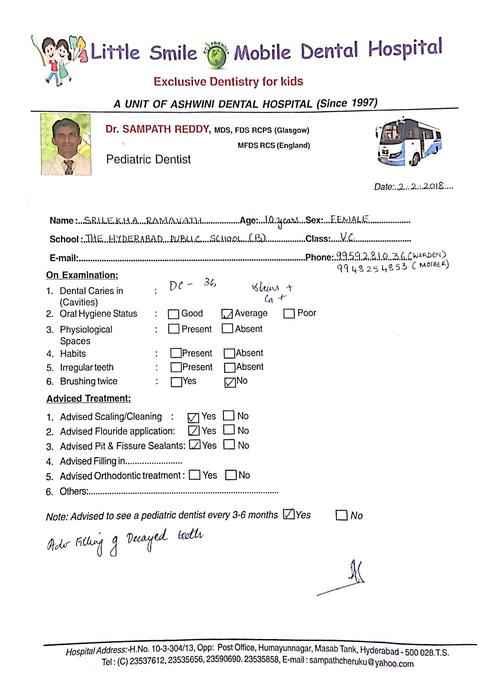 Little Smile Mobile Dental Hospital
Exclusive Dentistry for kids
A UNIT OF ASHWINI DENTAL HOSPITAL (Since 1997)
Dr. SAMPATH REDDY, MDS, FDS RCPS (Glasgow)
MFDS RCS (England)
Pediatric Dentist
Date: 2.2.2018
Name: SRILEKHA RAMAVATH Age: 10 years Sex: FEMALE
School: THE HYDERABAD PUBLIC SCHOOL (B) Class: V C
E-mail: Phone: 9959281036 (WARDEN)
9948254853 (MOTHER)
On Examination:
1. Dental Caries in (Cavities) : DC - 36, Stains +
Ca +
2. Oral Hygiene Status : Good ☑ Average Poor
3. Physiological Spaces : Present Absent
4. Habits : Present Absent
5. Irregular teeth : Present Absent
6. Brushing twice : Yes ☑ No
Adviced Treatment:
1. Advised Scaling/Cleaning : ☑ Yes No
2. Advised Flouride application: ☑ Yes No
3. Advised Pit & Fissure Sealants: ☑ Yes No
4. Advised Filling in
5. Advised Orthodontic treatment : Yes No
6. Others:
Note: Advised to see a pediatric dentist every 3-6 months ☑ Yes No
Adv Filling of Decayed teeth
Hospital Address:-H.No. 10-3-304/13, Opp: Post Office, Humayunnagar, Masab Tank, Hyderabad - 500 028.T.S.
Tel : (C) 23537612, 23535656, 23590690. 23535858, E-mail : sampathcheruku@yahoo.com